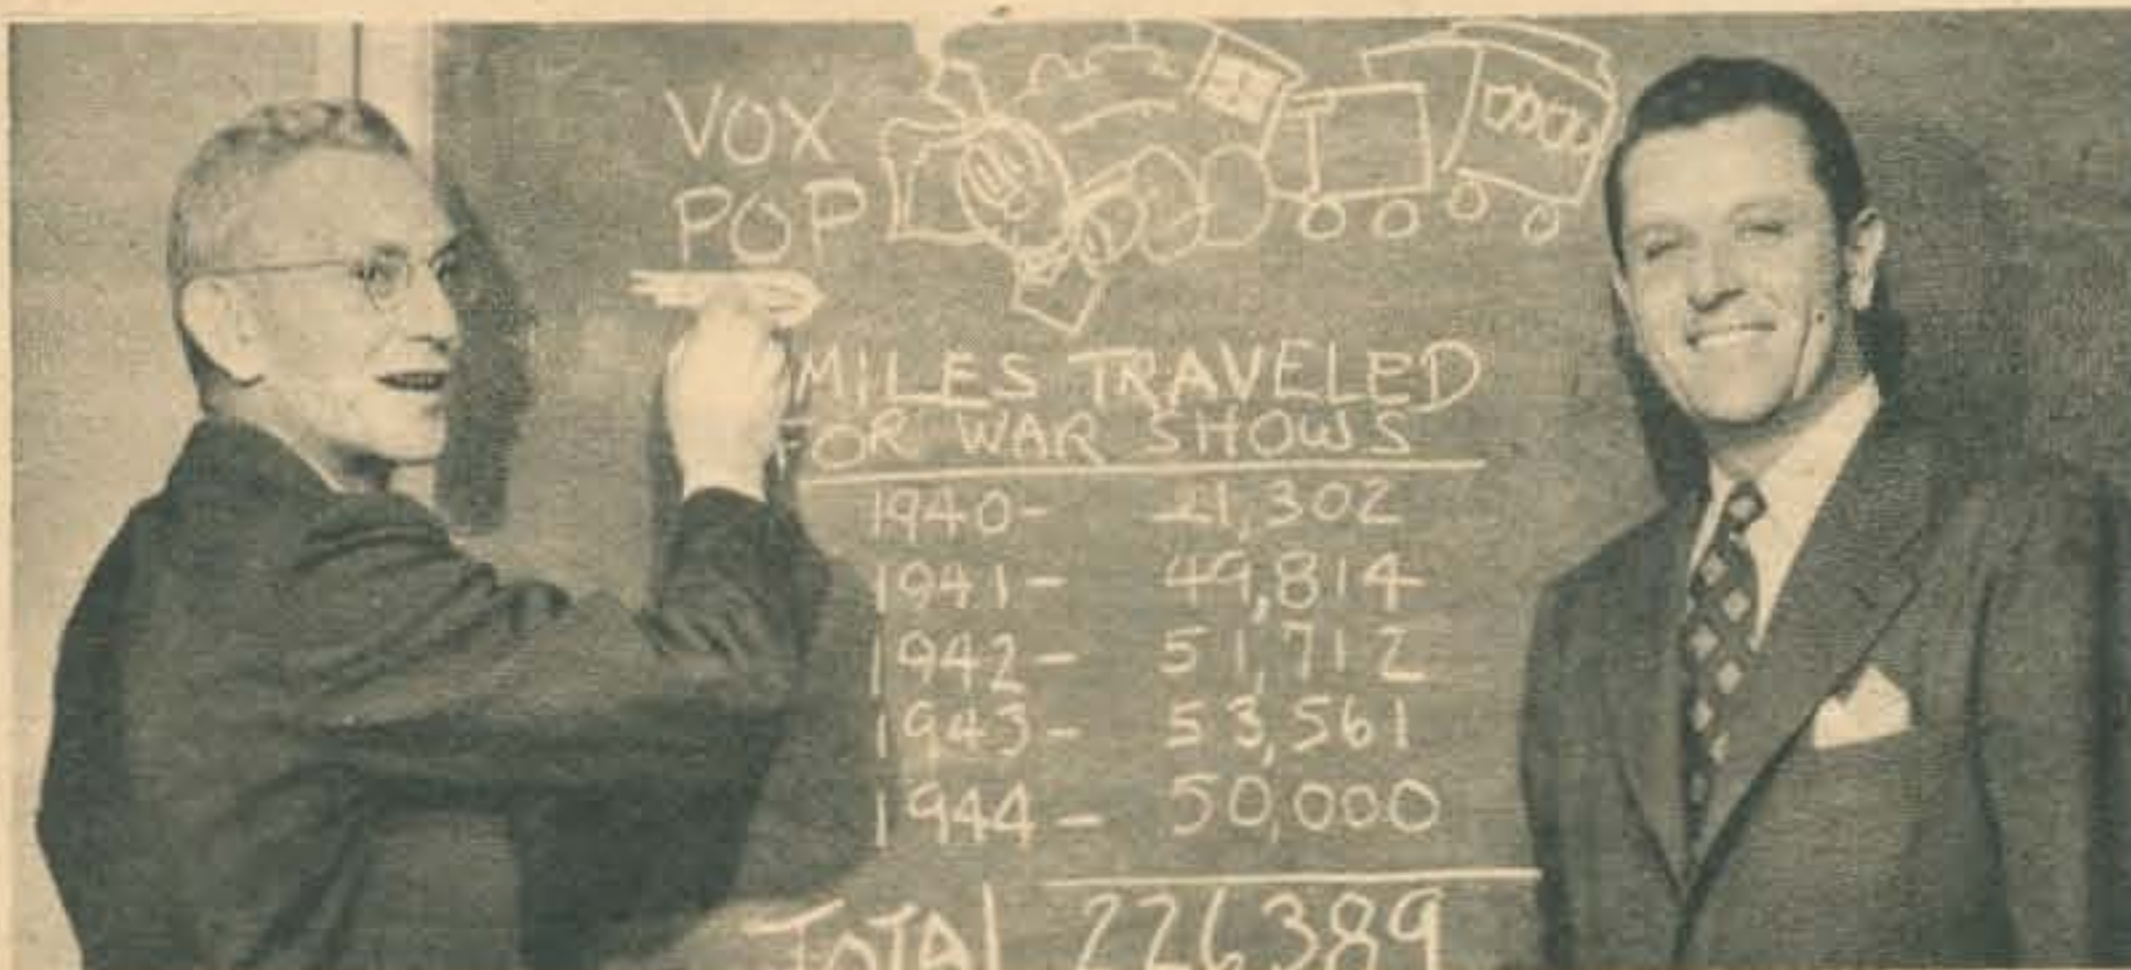 VOX
POP
MILES TRAVELED
FOR WAR SHOWS
1940- 21,302
1941- 49,814
1942- 51,712
1943- 53,561
1944- 50,000
TOTAL 226389